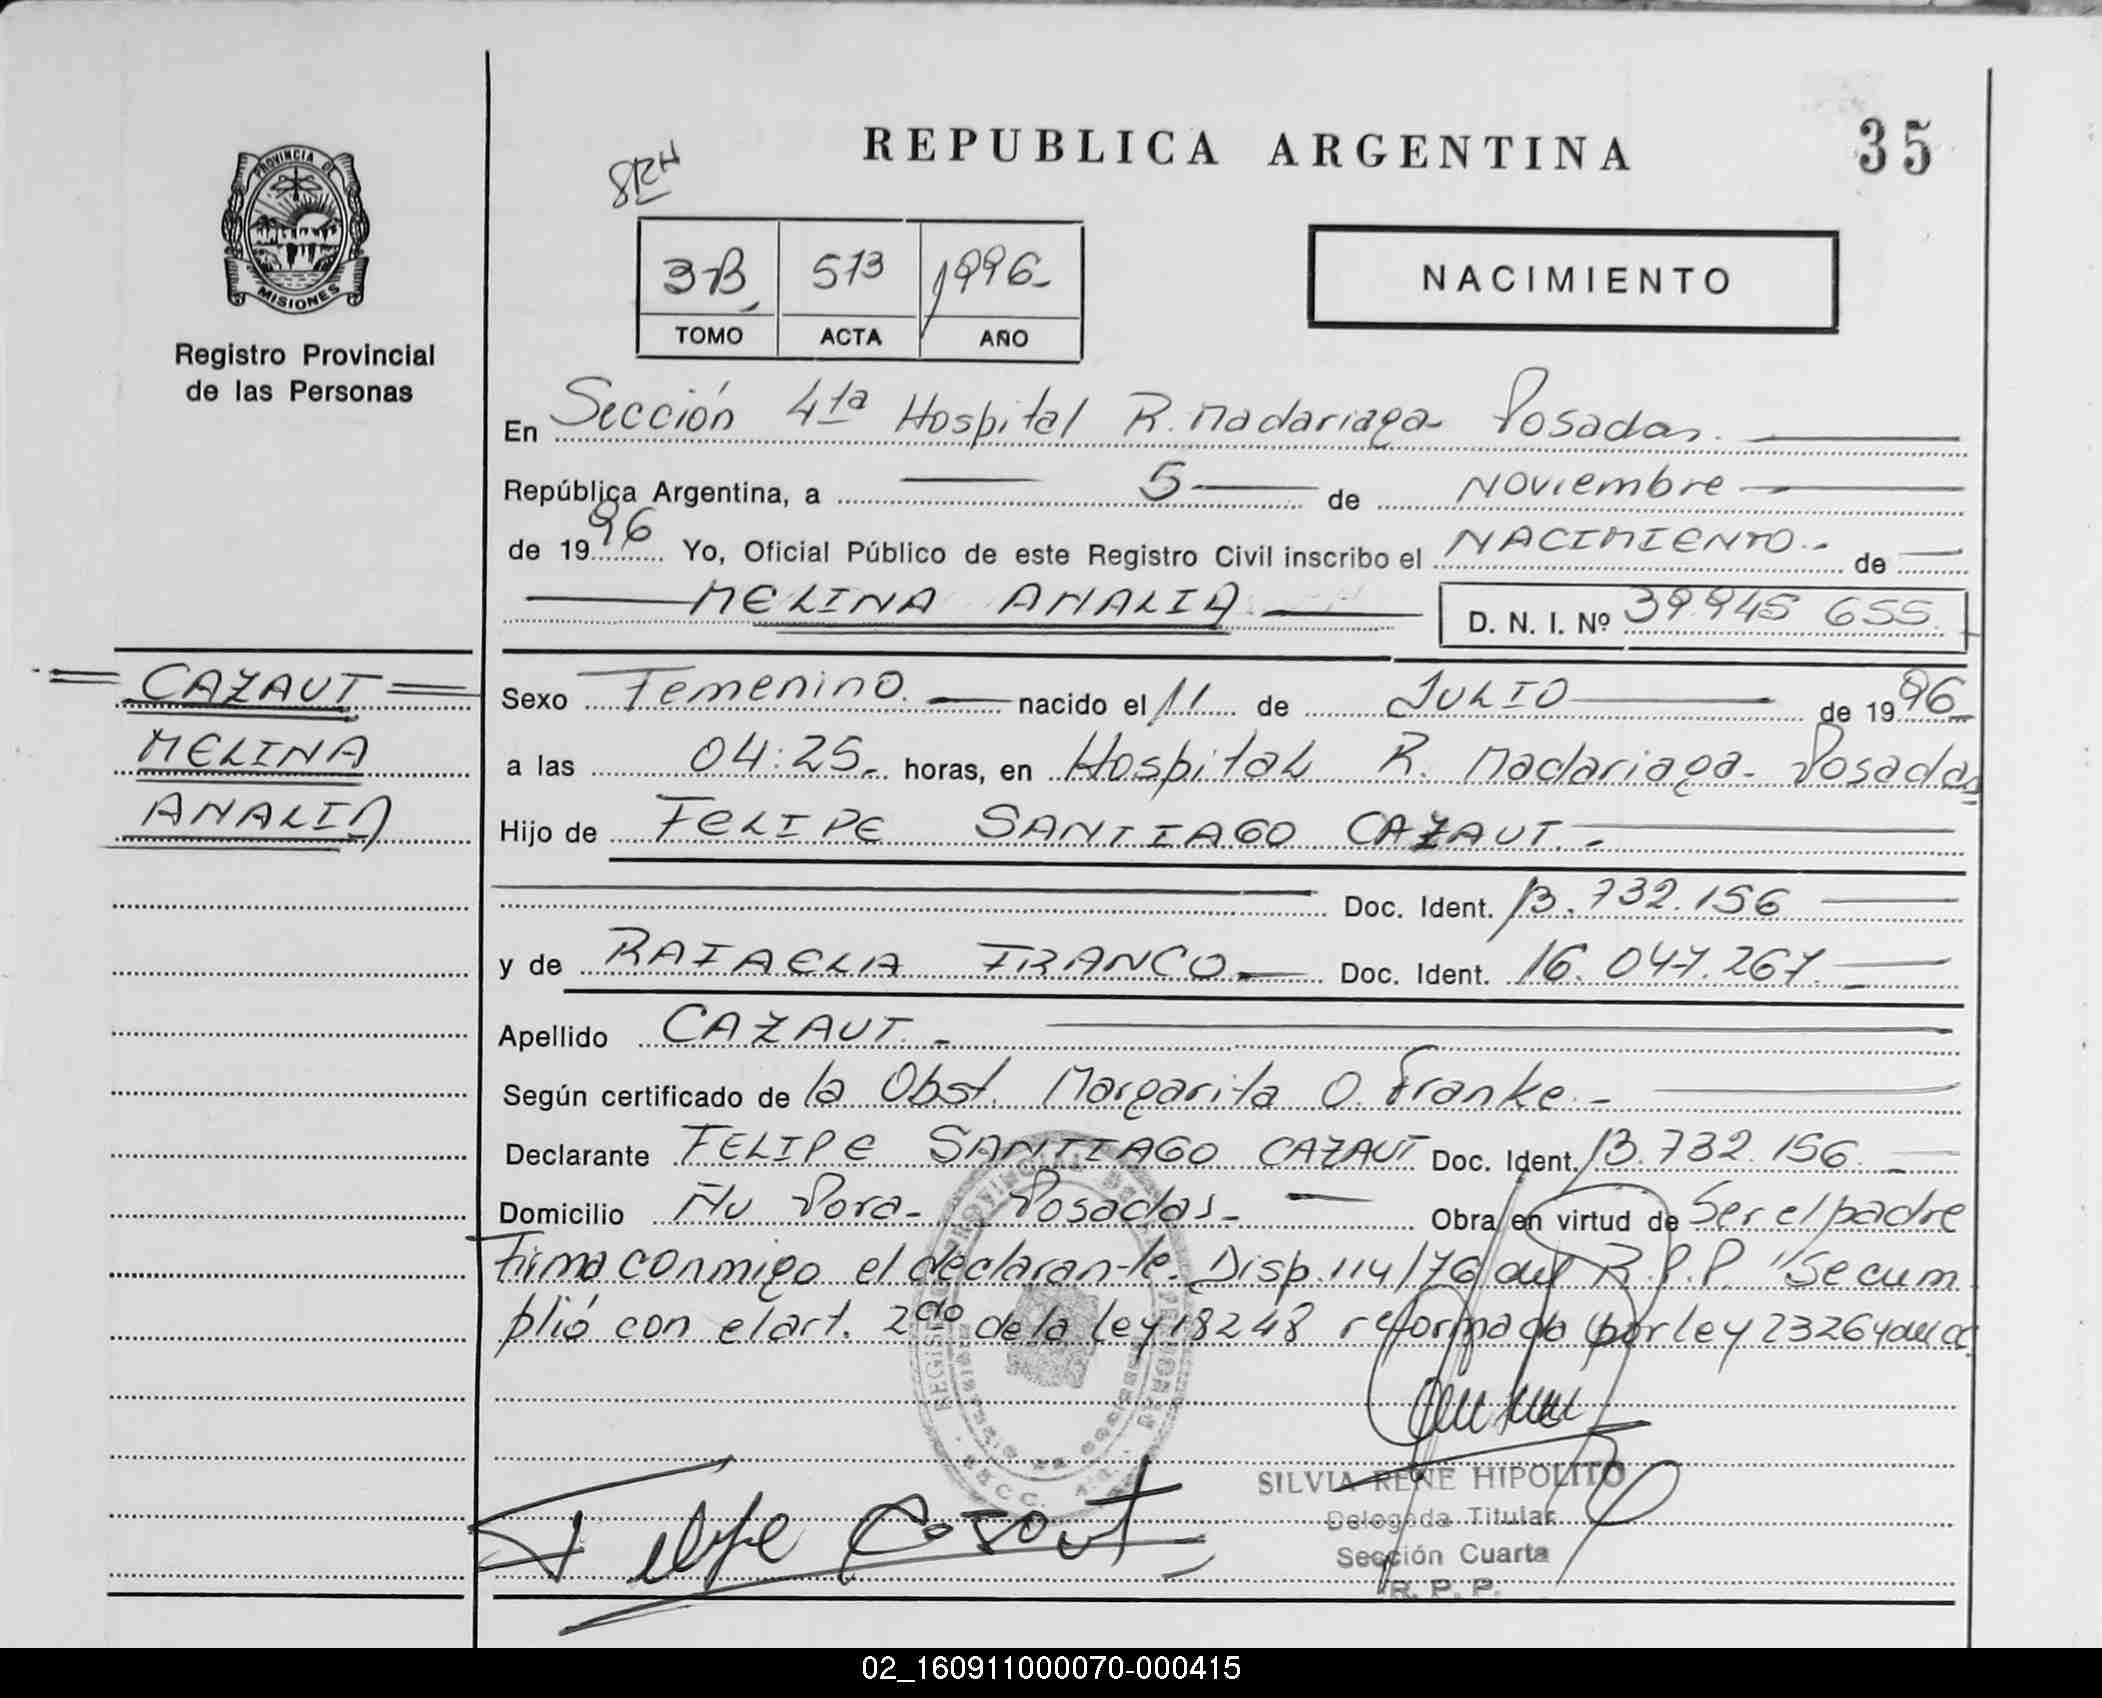 REPUBLICA ARGENTINA
35
SRH
PROVINCIA DE
MISIONES
Registro Provincial
de las Personas
3-B
513
1996-
TOMO
ACTA
AÑO
NACIMIENTO
En Sección 4ta Hospital R. Madariaga- Posadas.
República Argentina, a 5 de Noviembre
de 1996 Yo, Oficial Público de este Registro Civil inscribo el NACIMIENTO.- de
MELINA ANALIA D. N. I. Nº 39.945 655.
CAZAUT
MELINA
ANALIA
Sexo Femenino. nacido el 11 de JULIO de 1996
a las 04:25.- horas, en Hospital R. Madariaga- Posadas
Hijo de FELIPE SANTIAGO CAZAUT.-
Doc. Ident. 13.732.156
y de RAFAELA FRANCO Doc. Ident. 16.047.267.
Apellido CAZAUT.-
Según certificado de la Obst. Margarita O. Franke.-
Declarante FELIPE SANTIAGO CAZAUT Doc. Ident. 13.732.156.
Domicilio Ñu Pora- Posadas- Obra en virtud de Ser el padre
Firma conmigo el declarante. Disp. 114/76 del R.P.P. "Se cum
plió con el art. 2do de la ley 18248 reformada por ley 23264
Felipe Cazaut
SILVIA RENE HIPOLITO
Delegada Titular
Sección Cuarta
R. P. P.
02_160911000070-000415